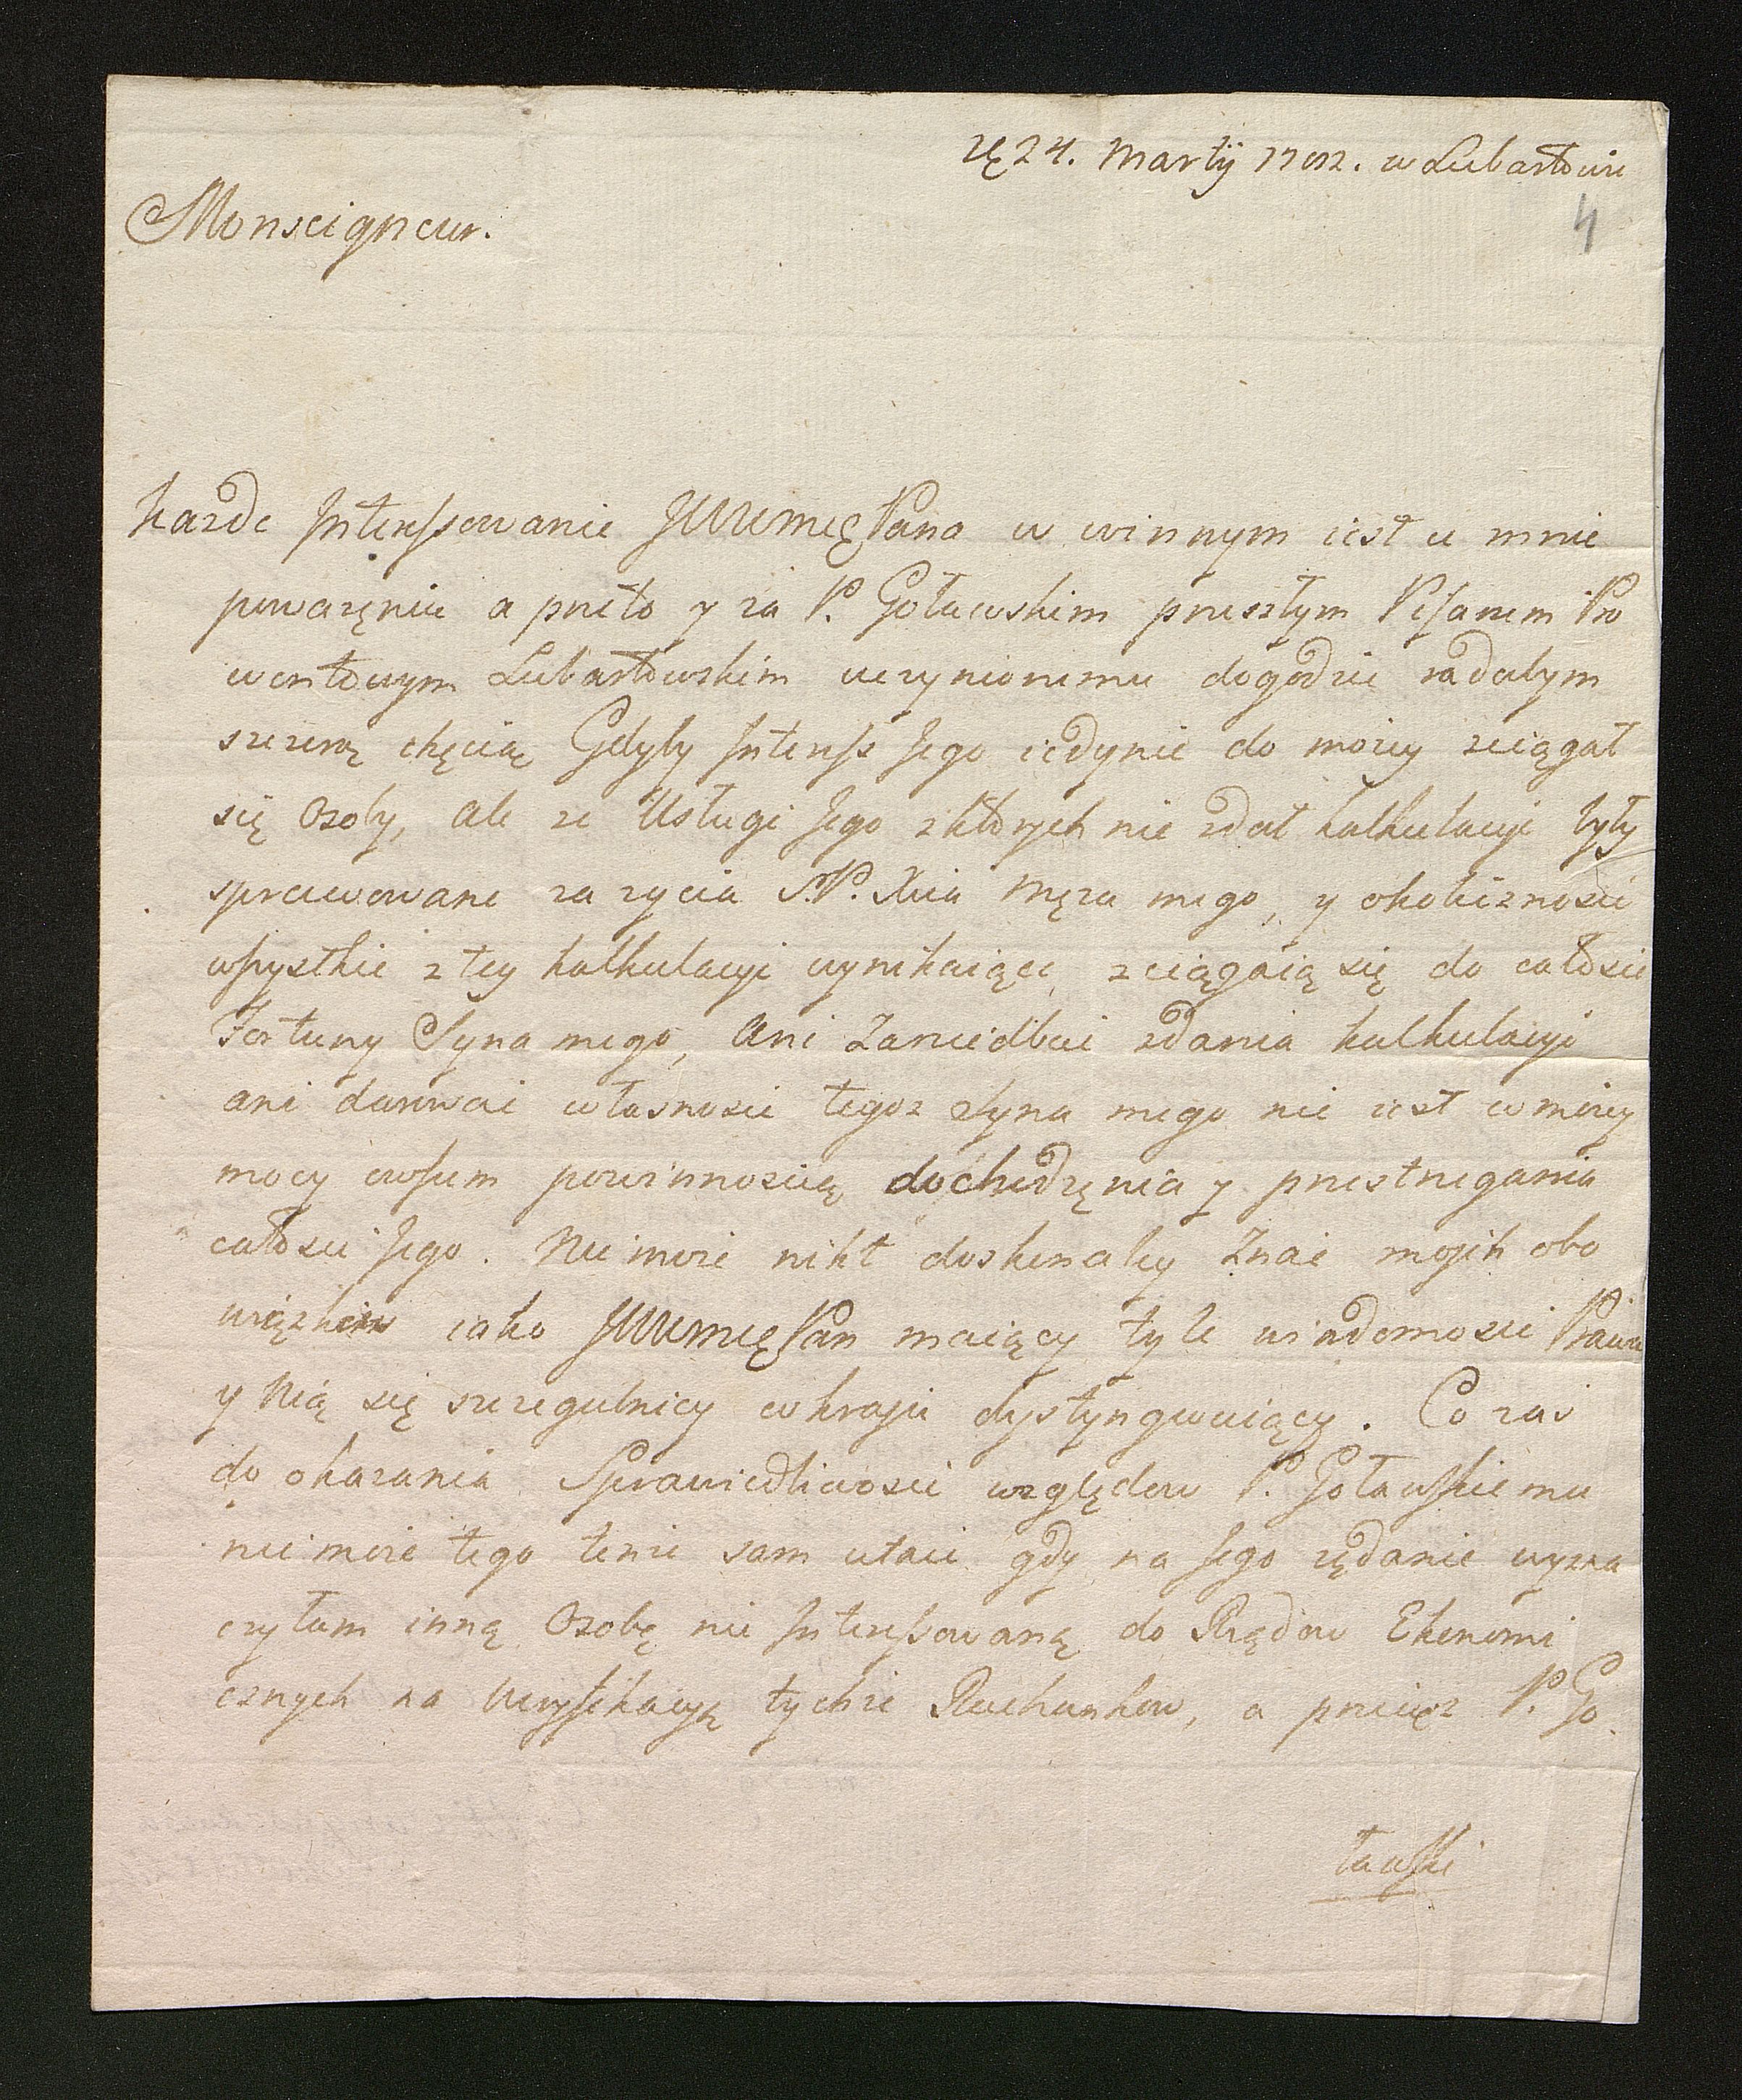 24. Martij w Lubartowie
4
Monseigneur.
każde Interessowanie JWWMęPana w winnym iest u mnie
poważęniu a przeto y za P. Goławskim przeszłym Pisarzem Pro
wentowym Lubartowskim uczynionemu dogodzić radabym
szczerą chęcią Gdyby Interess Jego iedynie do moiey sciągał
się Osoby, ale ze Usługi Jego z których nie zdał kalkulacyi były
sprawowane za zycia S.P. Xcia Męza mego, y okolicznosci
wszystkie z tey kalkulacyi wynikaiące, sciągaią się do całosci
Fortuny Syna mego, Ani Zaniedbać zdania kalkulacyi
ani darować własnosci tegoz Syna mego nie iest w moiey
mocy owszem powinnoscią dochodzęnia y przestrzegania
całosci Jego. Nie moze nikt doskonaley Znać moich obo
wiązkow iako JWWMęPan maiący tyle wiadomosci Prawa
y Nią się szczegulniey w kraju dystyngwuiący. Co zas
do okazania Sprawiedliwosci względow P. Goławskiemu
nie moze tego tenze sam utaić gdy na Jego ządanie wyzna
czyłam inną Osobę nie Interessowaną do Rządow Ekonomi
cznych na Weryfikacyą tychze Rachunkow, a przeciez P. Go
ławski